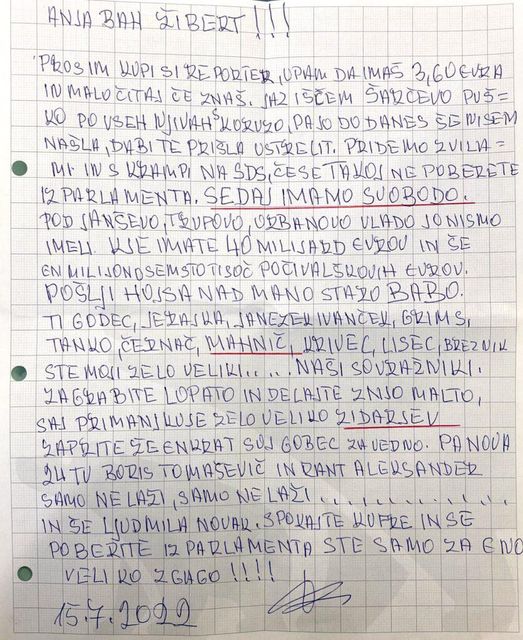 ANJA BAH ŽIBERT!!!
PROSIM KUPI SI REPORTER, UPAM DA IMAŠ 3,60 EURA
IN MALO ČITAJ ČE ZNAŠ. JAZ IŠČEM ŠARČEVO PUŠ=
KO PO VSEH NJIVAH S KORUZO, PA JO DO DANES ŠE NISEM
NAŠLA, DA BI TE PRIŠLA USTRELIT. PRIDEMO Z VILA=
MI IN S KRAMPI NA SDS, ČE SE TAKOJ NE POBERETE
IZ PARLAMENTA. SEDAJ IMAMO SVOBODO.
POD JANŠEVO, TRUPOVO, ORBANOVO VLADO JO NISMO
IMELI. KJE IMATE 40 MILIJARD EVROV IN ŠE
EN MILIJON OSEMSTO TISOČ POČIVALŠKOVIH EVROV.
POŠLJI HOJSA NAD MANO STARO BABO.
TI GODEC, JERAJKA, JANEZEK IVANČEK, GRIMS,
TANKO, ČERNAČ, MAHNIČ, KRIVEC, LISEC, BREZNIK
STE MOJI ZELO VELIKI..... NAŠI SOVRAŽNIKI.
ZAGRABITE LOPATO IN DELAJTE Z NJO MALTO,
SAJ PRIMANJKUJE ZELO VELIKO ZIDARJEV
ZAPRITE ŽE ENKRAT SVOJ GOBEC ZAVEDNO. PA NOVA
24TV BORIS TOMAŠEVIČ IN RANT ALEKSANDER
SAMO NE LAŽI, SAMO NE LAŽI ............
IN ŠE LJUDMILA NOVAK. SPOKAJTE KUFRE IN SE
POBERITE IZ PARLAMENTA STE SAMO ZA ENO
VELIKO ZGAGO!!!!
15.7.2022